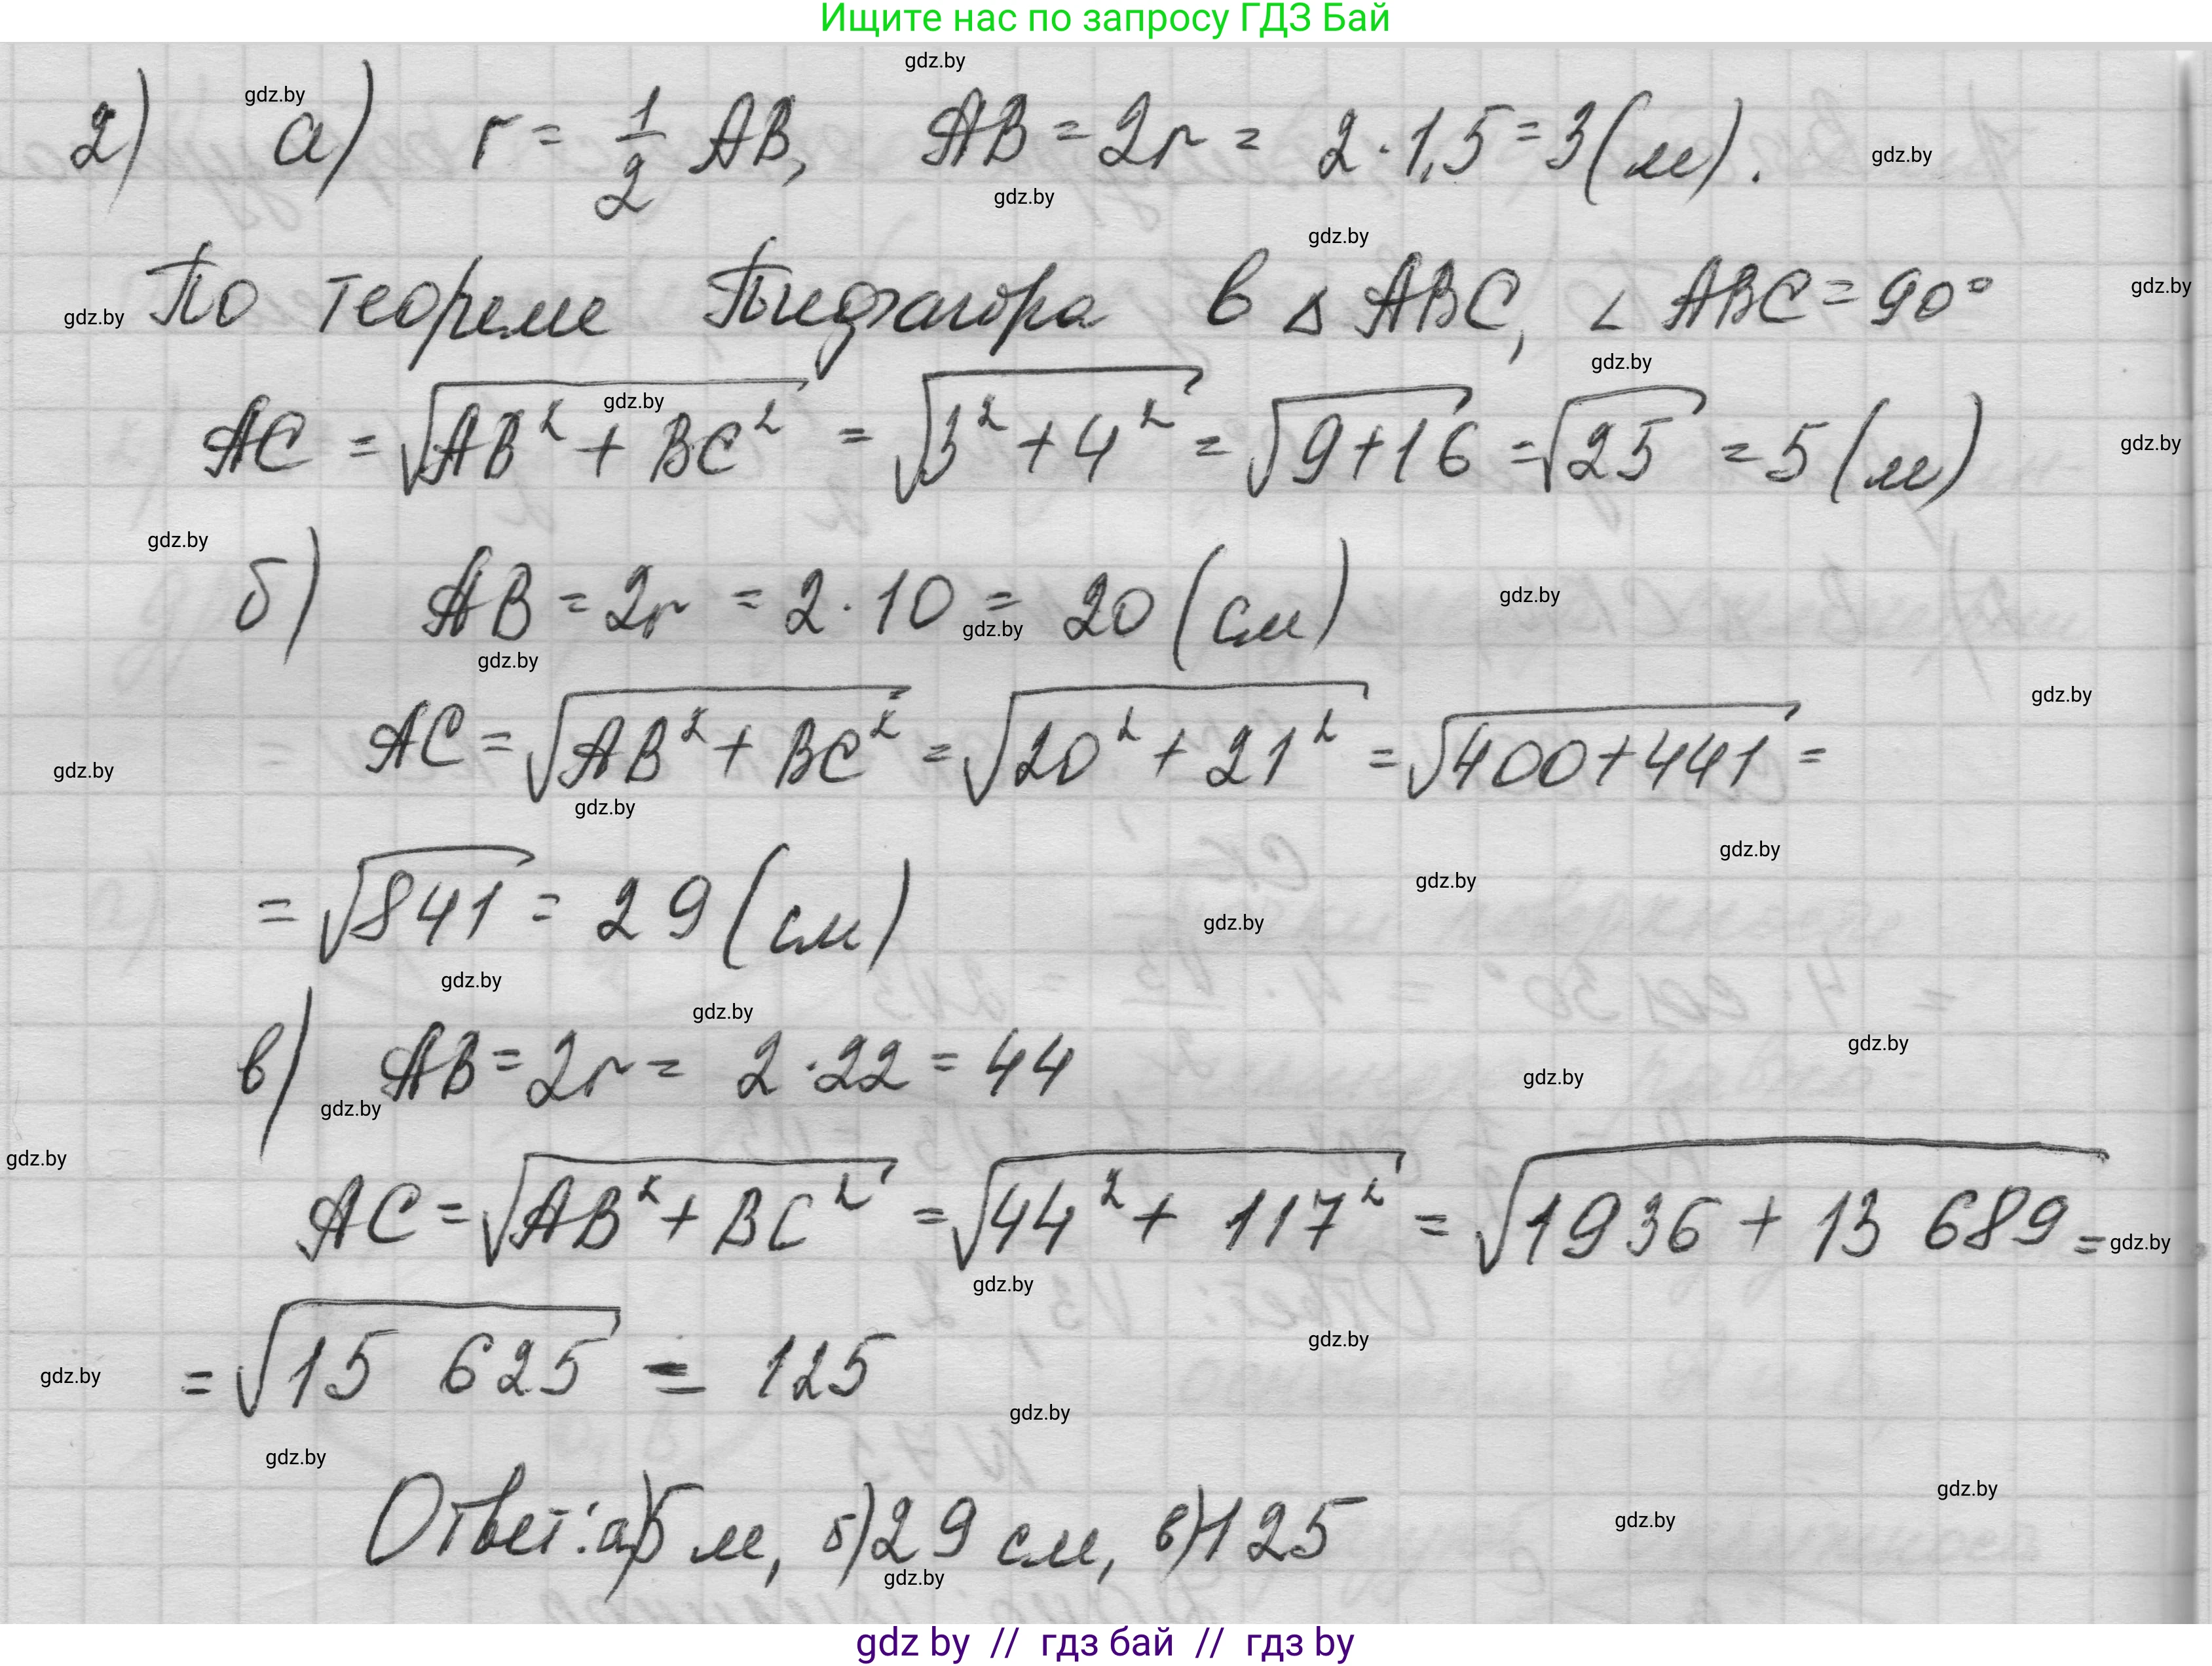 Ищите нас по запросу ГДЗ Бай
2) а) r = 1/2 AB, AB = 2r = 2 · 1,5 = 3 (м).
По теореме Пифагора в △ ABC, ∠ ABC = 90°
AC = √(AB² + BC²) = √(3² + 4²) = √(9 + 16) = √25 = 5 (м)
б) AB = 2r = 2 · 10 = 20 (см)
AC = √(AB² + BC²) = √(20² + 21²) = √(400 + 441) =
= √841 = 29 (см)
в) AB = 2r = 2 · 22 = 44
AC = √(AB² + BC²) = √(44² + 117²) = √(1936 + 13 689) =
= √15 625 = 125
Ответ: а) 5 м, б) 29 см, в) 125
gdz by // гдз бай // гдз by